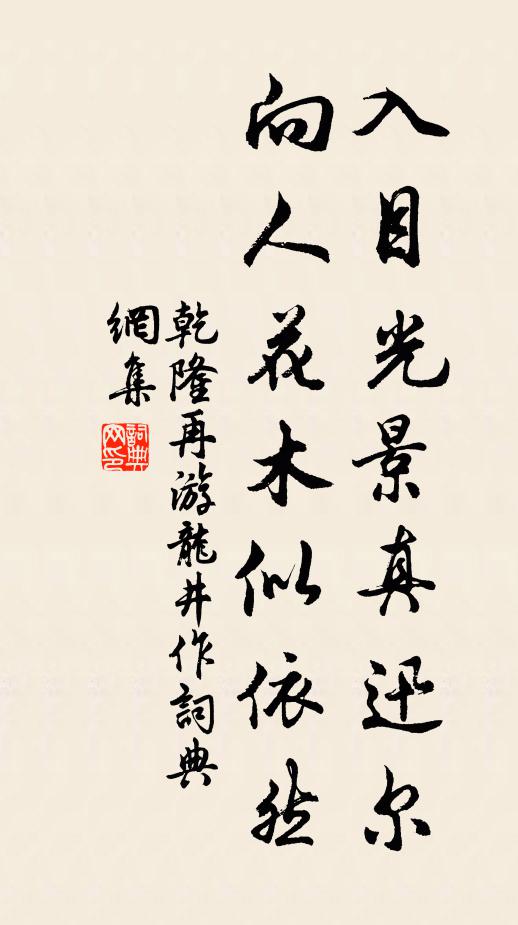 入目光景真迅尔
向人花木似依然
乾隆再游龍井作詞典
網集
詞典
网印